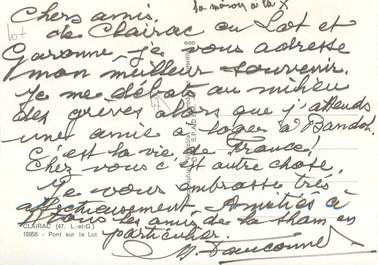 Chers amis,
de Clairac en Lot et
Garonne, je vous adresse
mon meilleur souvenir.
je me débats au milieu
des grèves alors que j'attends
une amie à loger à Bandol.
C'est la vie de France!
Chez vous c'est autre chose,
Je vous embrasse très
affectueusement. Amitiés à
tous les amis de la Sham en
particulier.
CLAIRAC (47. L.-et-G.)
10056 - Pont sur le Lot
Lot